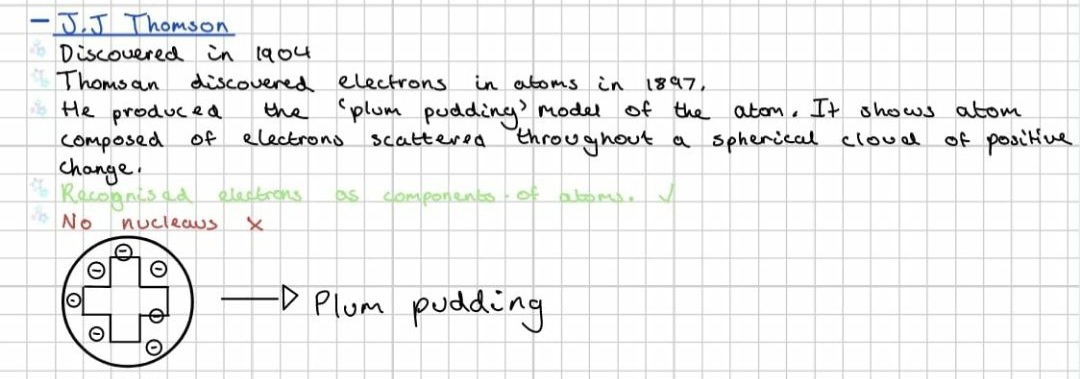 - J.J Thomson
Discovered in 1904
Thomsan discovered electrons in atoms in 1897.
He produced the 'plum pudding' model of the atom. It shows atom
composed of electrons scattered throughout a spherical cloud of positive
change.
Recognised electrons as components of atoms. ✓
No nucleaus x
→ Plum pudding